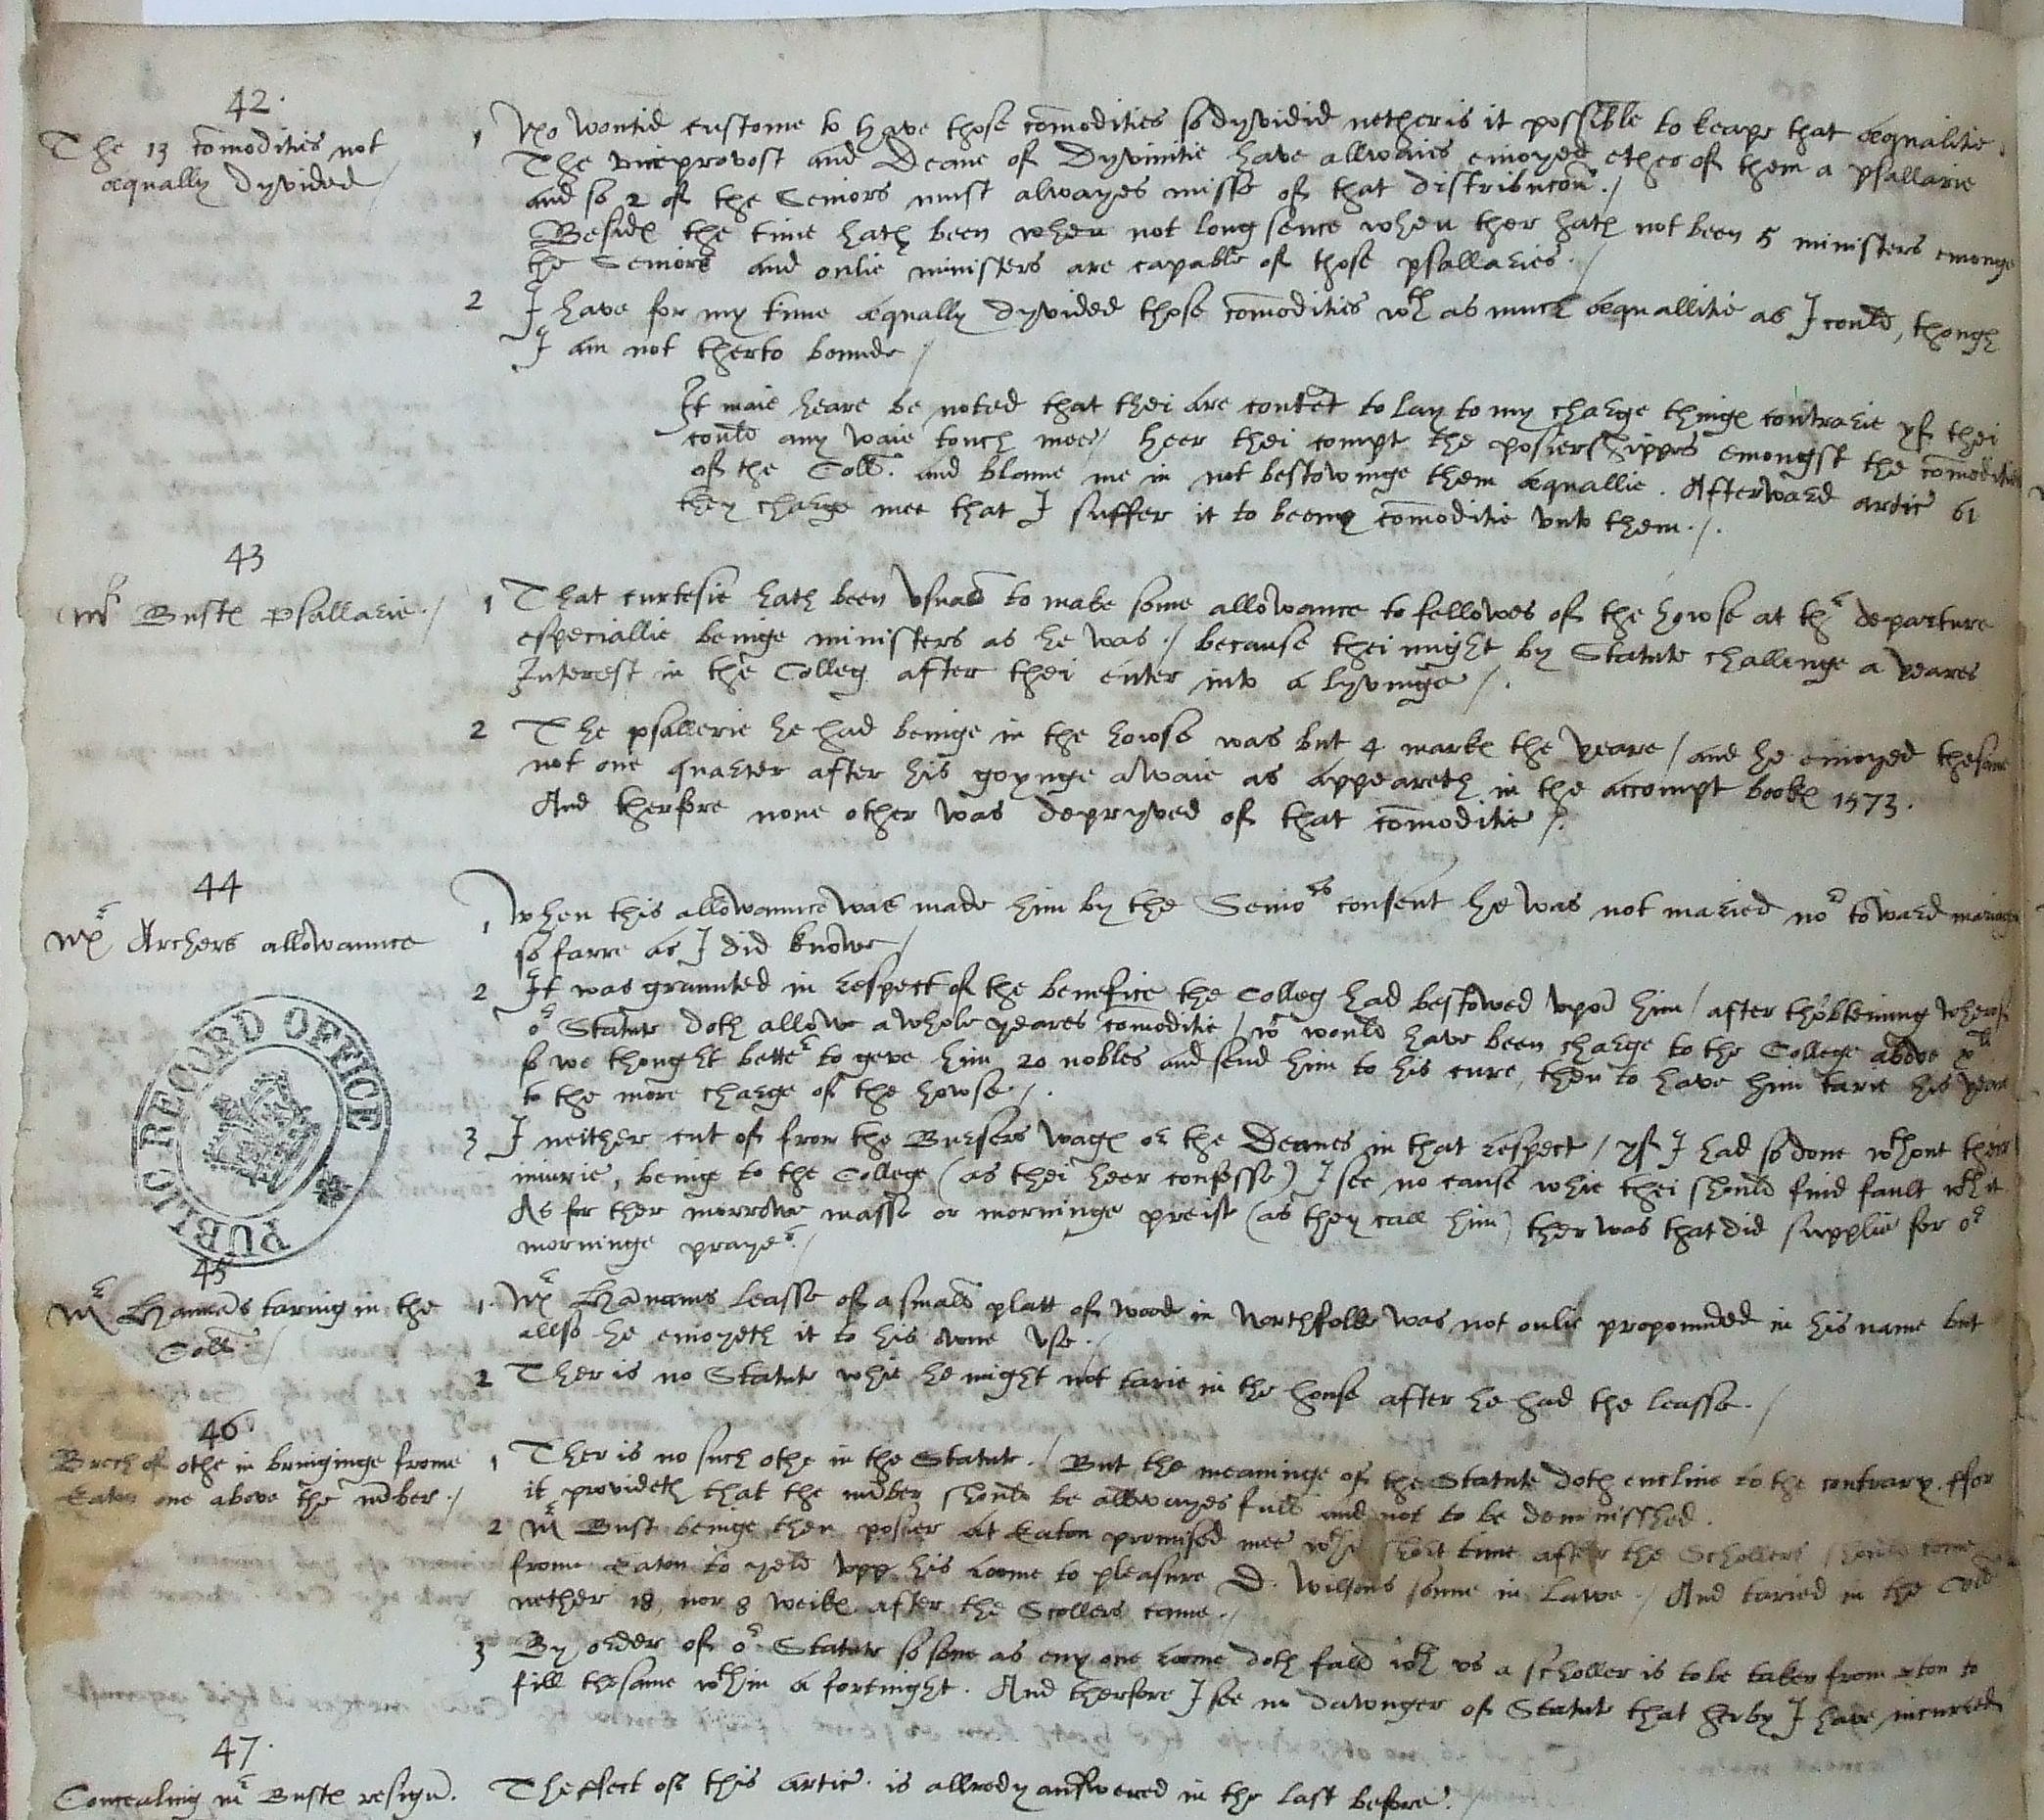 42.
The 13 comodities not
æqually dyvided /
1 No wontid custome to have those comodities so dyvidid nether is it possible to keape that æqualitie.
The viceprovost and Deane of Dyvinitie have allwaies enioyed ether of them a psallarie
and so 2 of the Seniors must alwayes misse of that distribucon. /
Besides the time hath been when not long sence when ther hath not been 5 ministers emonge
the Seniors and onlie ministers are capable of those psallaries. /
2 I have for my time æqually dyvided those comodities wth as much æquallitie as I could, though
I am not therto bounde /
It maie heare be noted that thei are contēt to lay to my charge thinges contrarie yf thei
could any waie touch mee / heer thei compt the posiershippes emongst the comodities
of the Coll. and blame me in not bestowinge them æquallie. Afterward artic 61
they charge mee that I suffer it to bee any comoditie unto them. /.
43
Mr Bustes psallarie. /
1 That curtesie hath been usuall to make some allowance to fellowes of the howse at thr departure
especiallie beinge ministers as he was. / because thei might by Statute challenge a yeares
Interest in the Colleg after thei enter into a lyvinge /.
2 The psallerie he had beinge in the howse was but 4 markes the yeare / and he enioyed thesame
not one quarter after his goynge awaie as appeareth in the accompt bookes 1573.
And therfore none other was depryved of that comoditie /.
44
Mr Archers allowaunce
1 When this allowaunce was made him by the Seniors consent he was not maried nor toward mariage
so farre as I did knowe /
2 It was graunted in respect of the benefice the Colleg had bestowed upon him / after thobteining wherof
or Statute doth allowe a whole yeares comoditie / wch would have been charge to the College above xli
so we thought better to geve him 20 nobles and send him to his cure, then to have him tarie his yeare
to the more charge of the howse /.
3 I neither cut of from the Bursers wages or the Deanes in that respect / yf I had so done wthout their
iniurie, beinge to the College (as thei heer confesse) I see no cause whie thei should find fault wth it
As for ther morrowe masse or morninge preist (as they call him) ther was that did supplie for or
morninge prayer. /
PUBLIC RECORD OFFICE
45
Mr Hānams taring in the
Coll. /
1. Mr Hānams leasse of a small platt of wood in Northfolke was not onlie propounded in his name but
allso he enioyeth it to his owne use. /
2 Ther is no Statute whie he might not tarie in the house after he had the leasse. /
46
Brech of othe in bringinge frome
Eaton one above the nūber. /
1 Ther is no such othe in the Statute. / But the meaninge of the Statute doth encline to the contrary. ffor
it provideth that the nūber should be allwayes full and not to be deminisshed.
2 Mr Bust beinge then posier at Eaton promised mee wthin short time after the Schollers should come
frome Eaton to yeld upp his roome to pleasure D. Wilsons sonne in Lawe. / And taried in the Coll
nether 18, nor 8 weikes after the Scollers came. /
3 By order of or Statute so sone as eny one roome doth fall wth us a scholler is to be taken from eton to
fill thesame wthin a fortnight. And therfore I see no dawnger of Statute that herby I have incurred
47.
Concealing Mr Bustes resign.
Theffect of this artic. is allredy answered in the last before. /